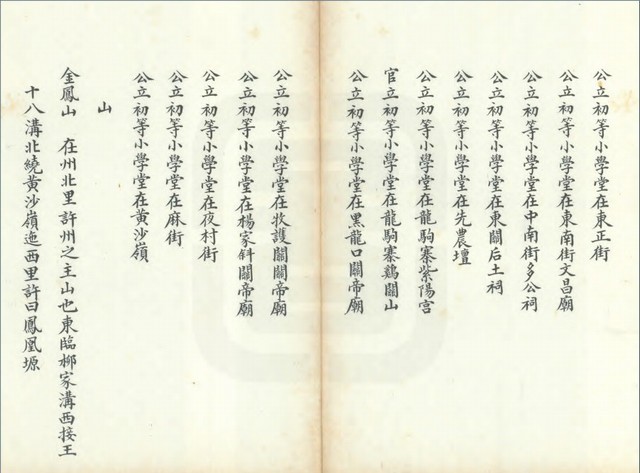 公立初等小學堂在東正街
公立初等小學堂在東南街文昌廟
公立初等小學堂在中南街多公祠
公立初等小學堂在東關后土祠
公立初等小學堂在先農壇
公立初等小學堂在龍駒寨紫陽宮
官立初等小學堂在龍駒寨鷄關山
公立初等小學堂在黑龍口關帝廟
公立初等小學堂在牧護關關帝廟
公立初等小學堂在楊家斜關帝廟
公立初等小學堂在夜村街
公立初等小學堂在麻街
公立初等小學堂在黃沙嶺
山
金鳳山 在州北里許州之主山也東臨柳家溝西接王
十八溝北繞黃沙嶺迤西里許曰鳳凰塬